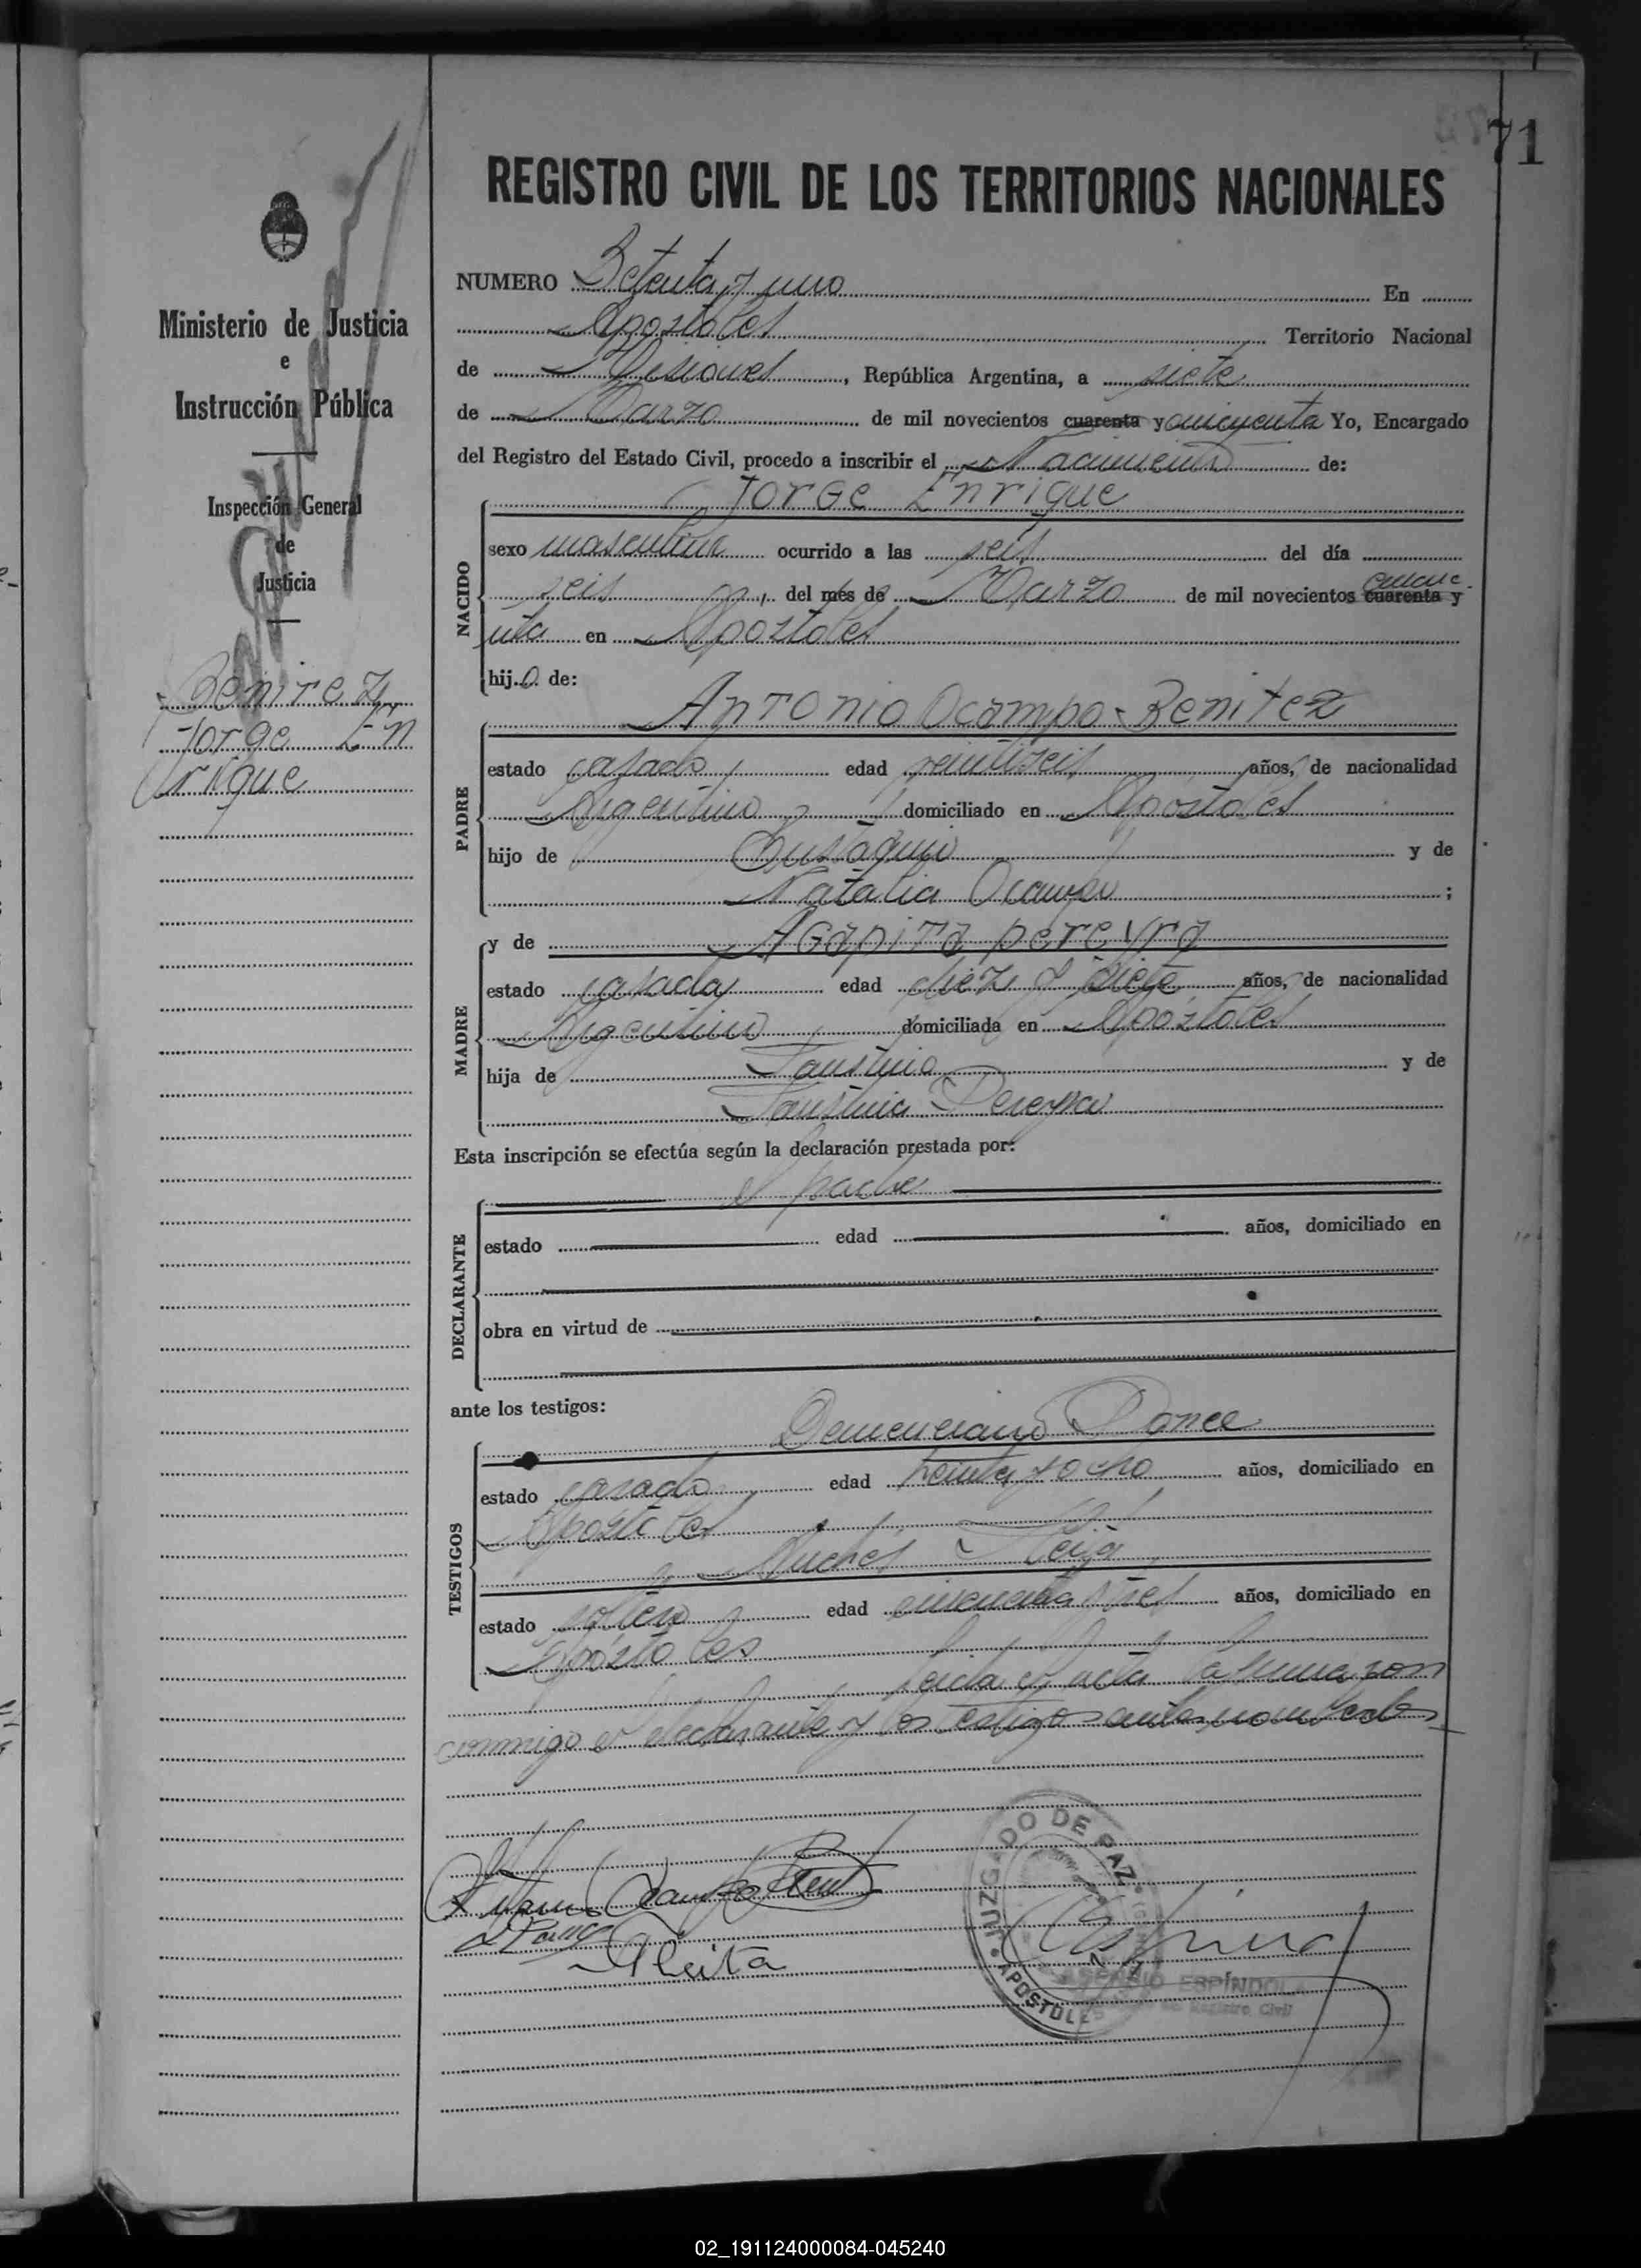 71
REGISTRO CIVIL DE LOS TERRITORIOS NACIONALES
Ministerio de Justicia
e
Instrucción Pública
Inspección General
de
Justicia
Benitez
Jorge En
rique
NUMERO Setenta y uno En
Apostoles Territorio Nacional
de Misiones, República Argentina, a siete
de Marzo de mil novecientos cuarenta y cincuenta Yo, Encargado
del Registro del Estado Civil, procedo a inscribir el Nacimiento de:
NACIDO
Jorge Enrique
sexo masculino ocurrido a las seis del día
seis del mes de Marzo de mil novecientos cuarenta y cincue
nta en Apostoles
hijo de:
PADRE
Antonio Ocampo-Benitez
estado casado edad veintiseis años, de nacionalidad
Argentino domiciliado en Apostoles
hijo de Eustaquio y de
Natalia Ocampo;
MADRE
y de Agapita pereyra
estado casada edad diez y siete años, de nacionalidad
Argentina domiciliada en Apostoles
hija de Faustino y de
Faustina Pereyra
Esta inscripción se efectúa según la declaración prestada por:
DECLARANTE
el padre
estado edad años, domiciliado en
obra en virtud de
ante los testigos:
TESTIGOS
Ponce
estado casado edad treinta y ocho años, domiciliado en
Apostoles
Andrés
estado soltero edad cincuenta y tres años, domiciliado en
Apostoles
Leida el acta la firmaron
conmigo el declarante y los testigos antes nombrados
JUZGADO DE PAZ
APOSTOLES
ESPÍNDOLA
Registro Civil
02_191124000084-045240